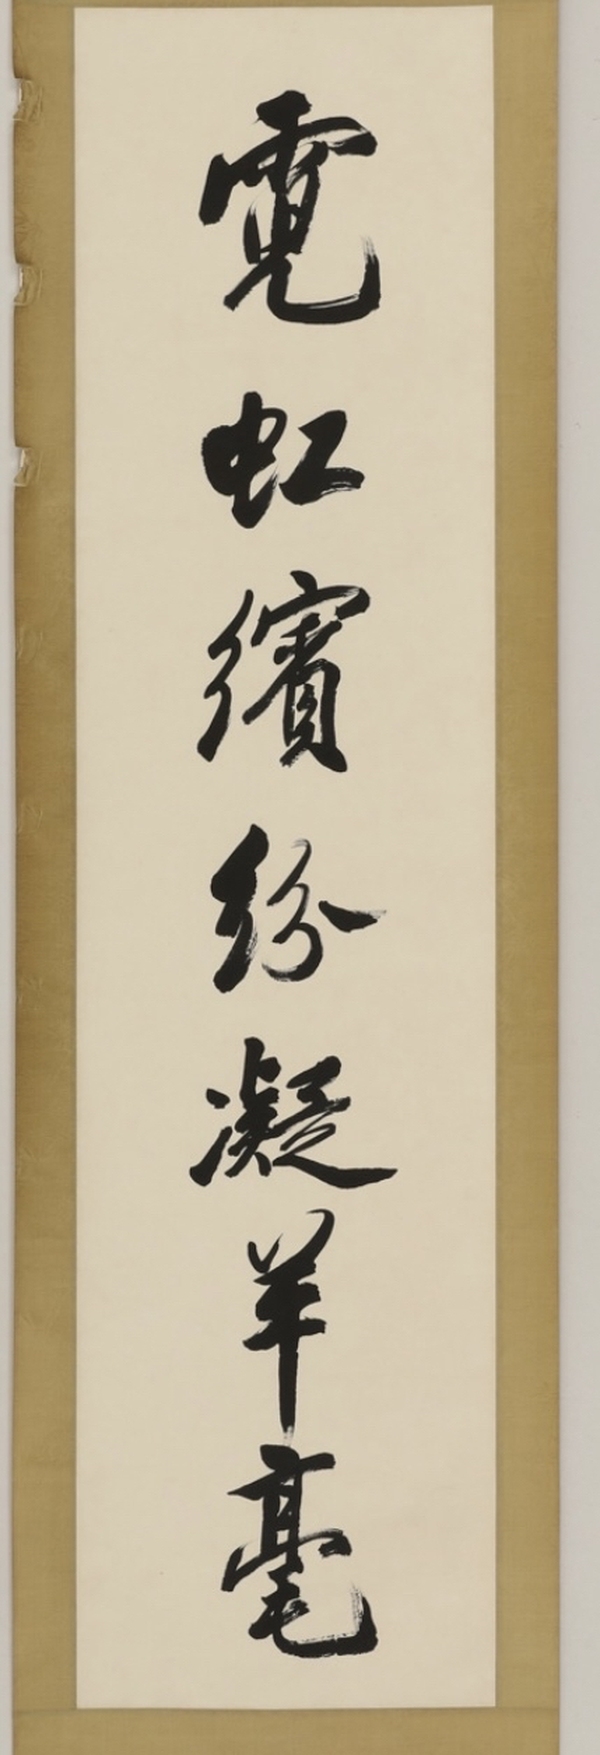 霓虹繽紛凝羊毫